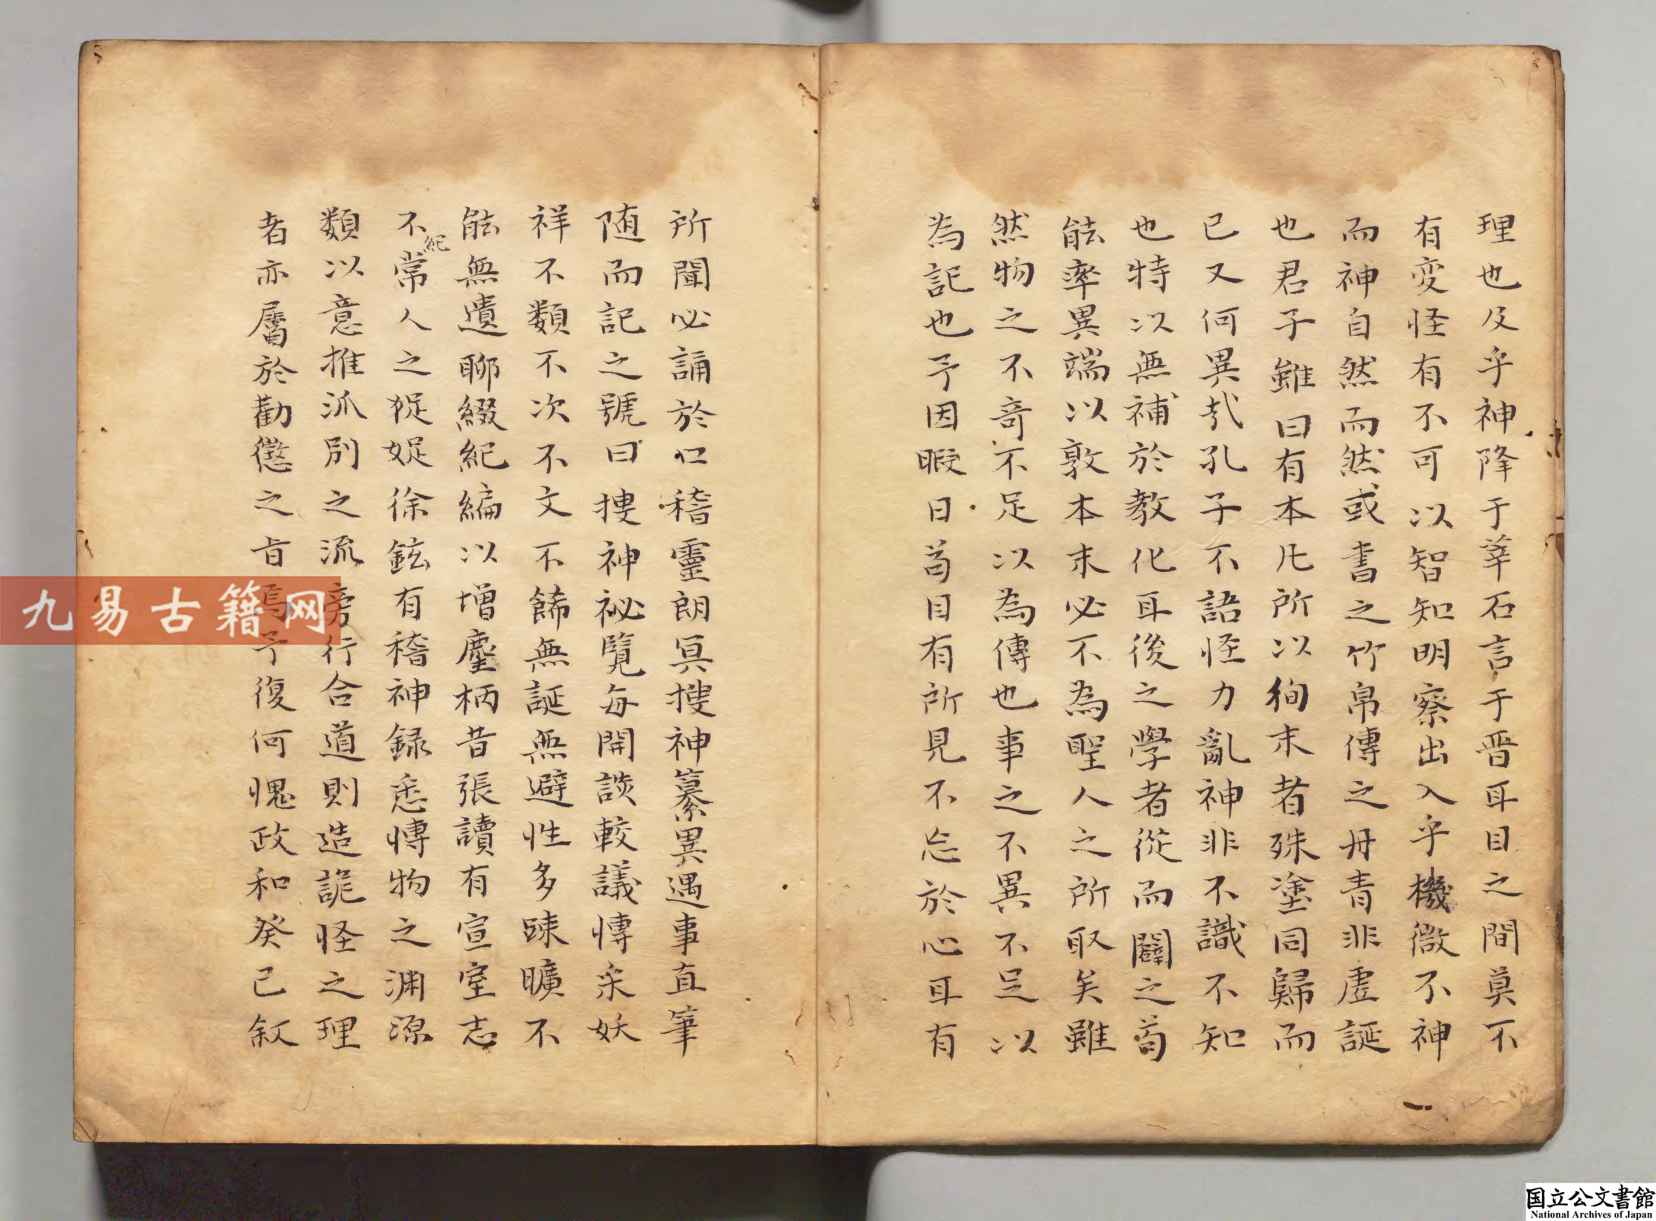 理也及乎神降于莘石言于晋耳目之間莫不
有変怪有不可以智知明察出入乎機微不神
而神自然而然或書之竹帛傳之丹青非虛誕
也君子雖曰有本凡所以徇末者殊塗同歸而
已又何異哉孔子不語怪力亂神非不識不知
也特以無補於教化耳後之學者從而闢之苟
能率異端以敦本末必不為聖人之所取矣雖
然物之不奇不足以為傳也事之不異不足以
為記也予因暇日苟目有所見不忘於心耳有
所聞必誦於口稽靈朗冥搜神纂異遇事直筆
随而記之號曰搜神祕覽每開談較議慱采妖
祥不類不次不文不餙無誕無避性多踈曠不
能無遺聊綴紀編以增麈柄昔張讀有宣室志
不紀常人之娖娖徐鉉有稽神録悉慱物之渊源
類以意推派別之流旁行合道則造詭怪之理
者亦屬於勸懲之旨焉予復何愧政和癸已叙
九易古籍网
国立公文書館
National Archives of Japan